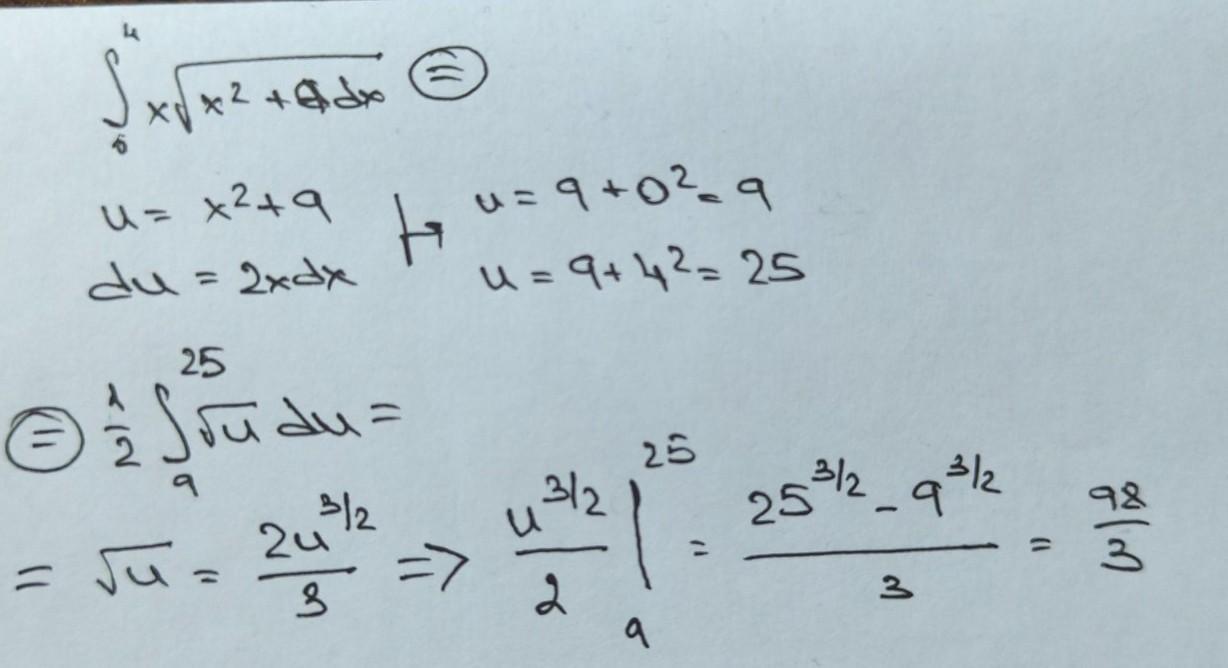 ∫₀⁴ x√(x² + 9 dx) ⊜
u = x² + 9 ↦ u = 9 + 0² = 9
du = 2x dx u = 9 + 4² = 25
⊜ 1/2 ∫₉²⁵ √u du =
= √u = 2u^(3/2)/3 => u^(3/2)/2 |₉²⁵ = (25^(3/2) - 9^(3/2))/3 = 98/3